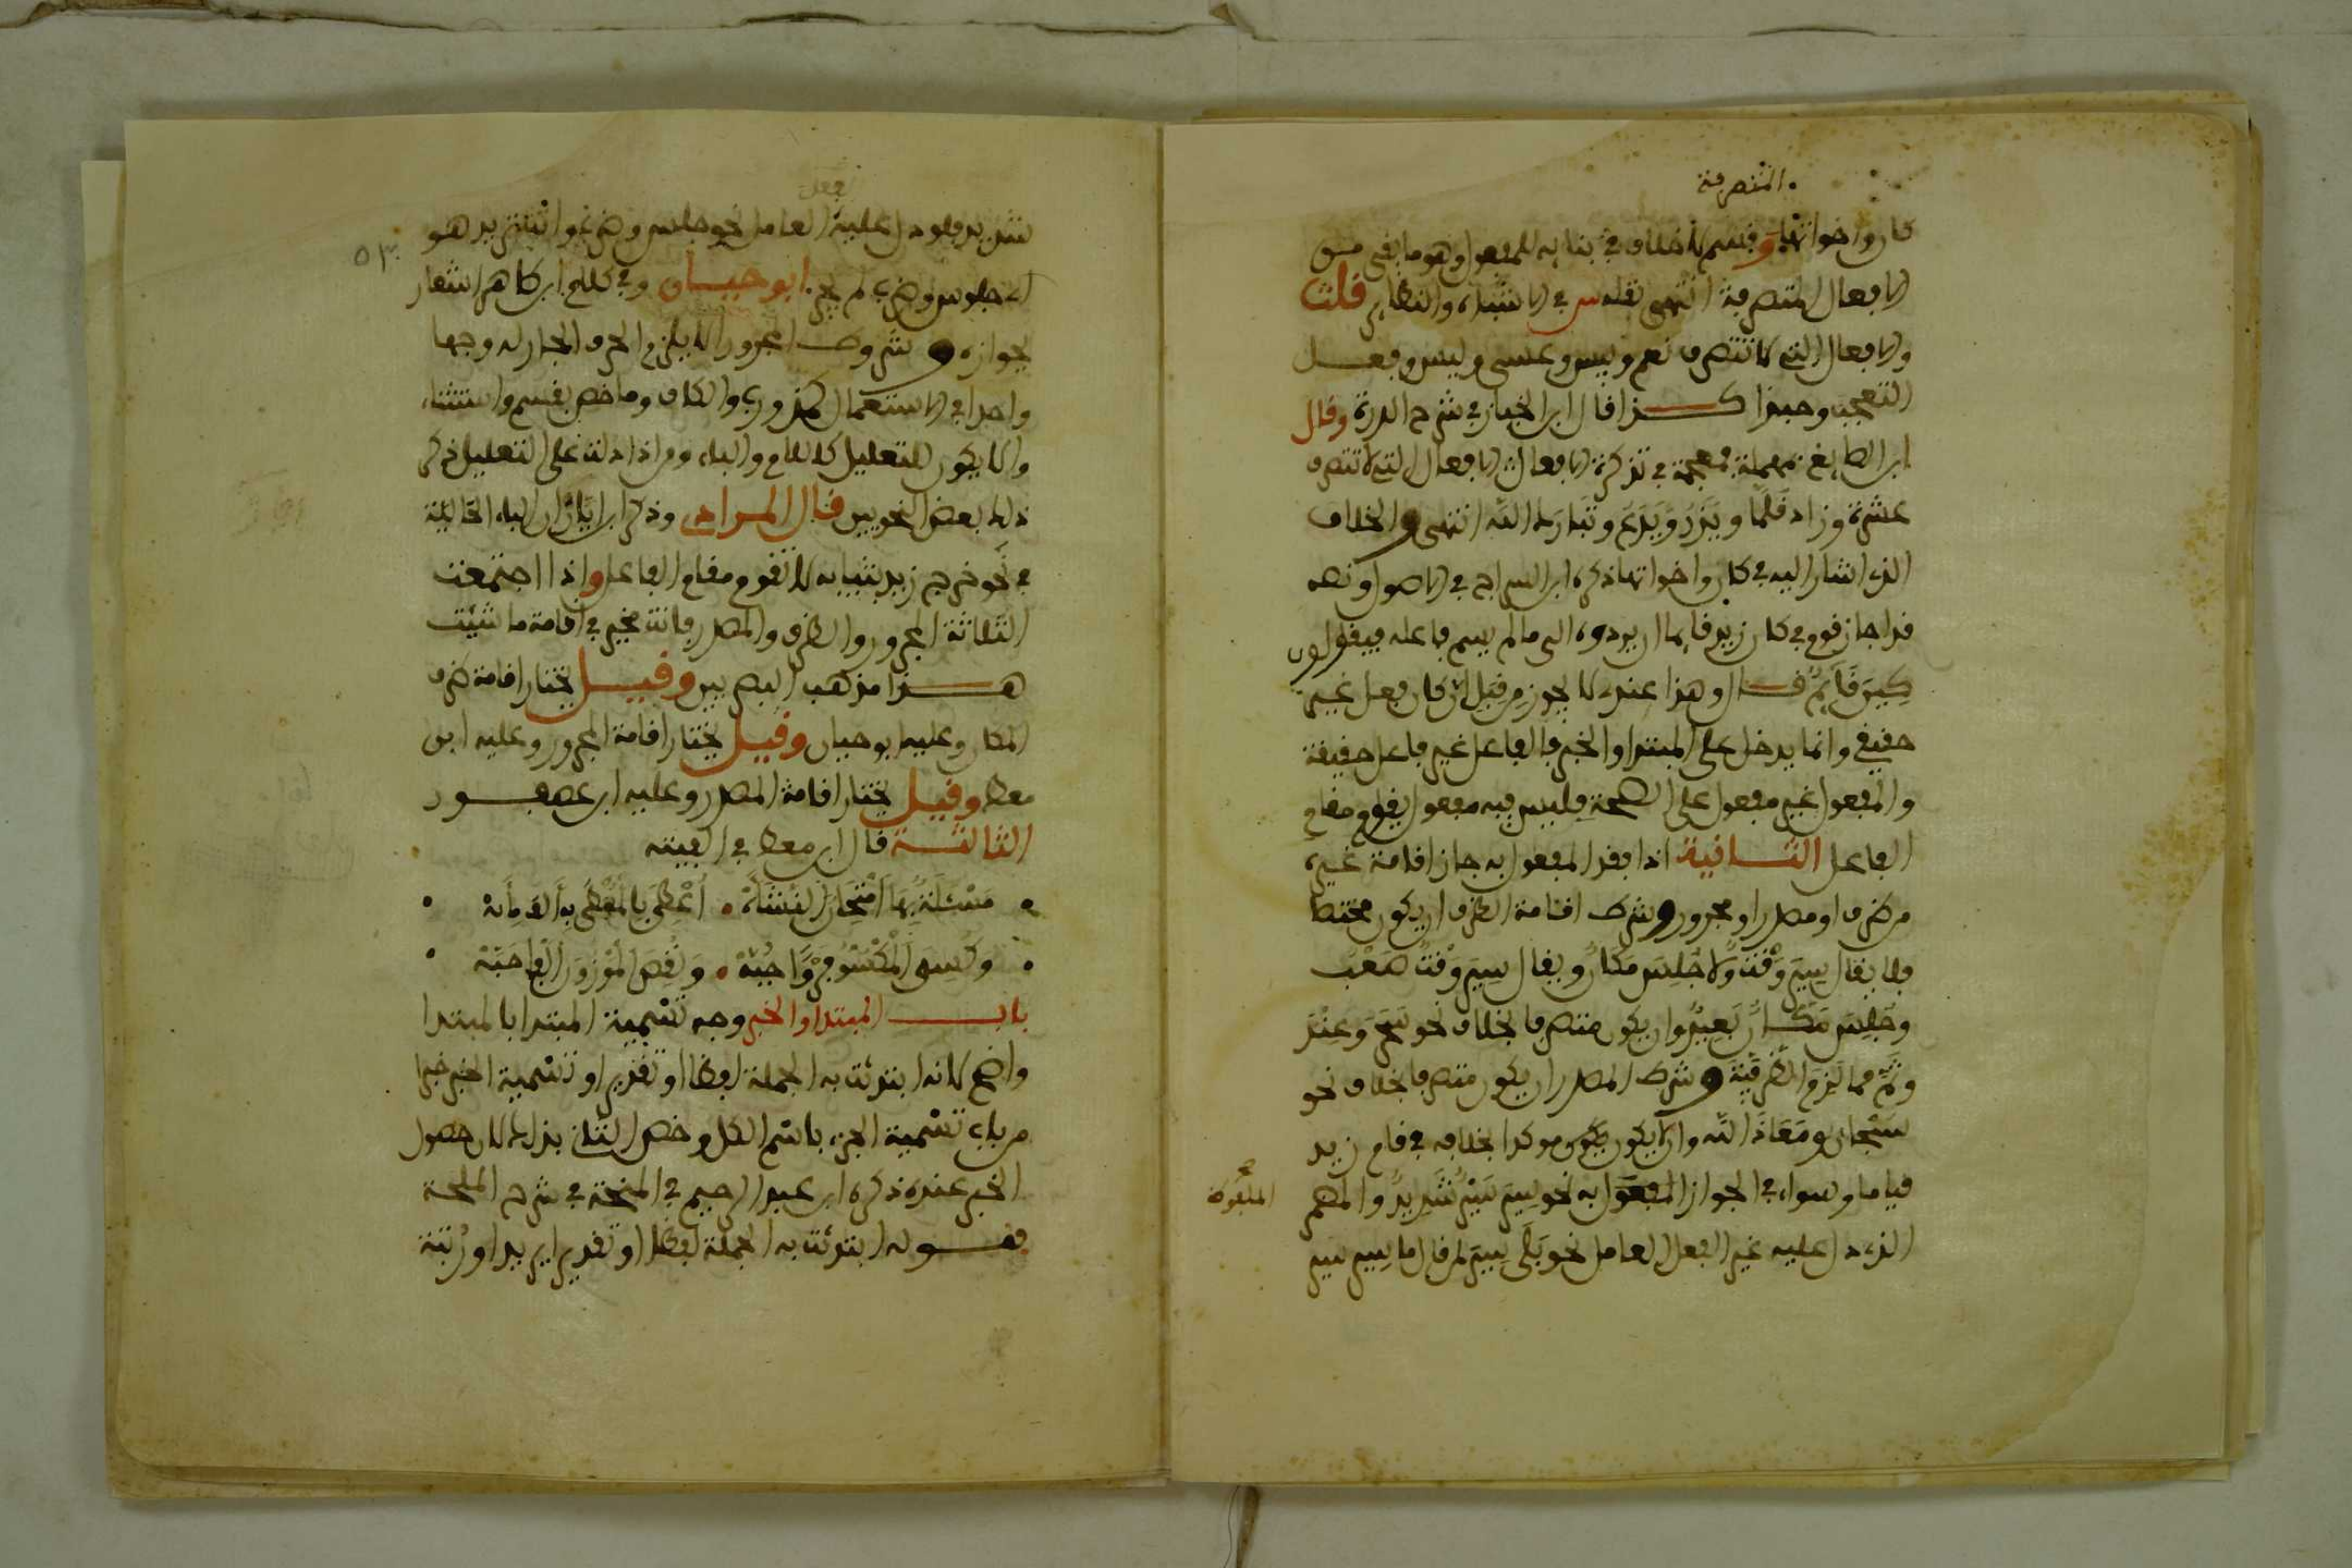 المتصرفة
كان واخواتها وقسم لا خلاف في بنايه للمفعول وهو ما بقي من
الافعال المتصرفة انتهى نقله س في الاشباه والنظاير قلت
والافعال التي لا تتصرف نعم وبيس وعسى وليس وفعل
التعجب وحبذا كذا قال ابن الخباز في شرح الدرة وقال
ابن الصايغ بمهملة فمعجمة في تذكرة الافعال التي لا تتصرف
عشرة وزاد قلما ويذر ويدع وتبارك الله انتهى والخلاف
الذي اشار اليه في كان واخواتها ذكره ابن السراج في الاصول ونصه
قد اجاز قوم في كان زيد قايما ان يردوه الى ما لم يسم فاعله فيقولون
كين قايم قال وهذا عندي لا يجوز من قبل ان كان فعل غير
حقيقي وانما يدخل على المبتدا والخبر فالفاعل غير فاعل حقيقة
والمفعول غير مفعول على الصحة فليس فيه مفعول يقوم مقام
الفاعل الثانية اذا فقد المفعول به جاز اقامة غيره
من ظرف او مصدر او مجرور وشرط اقامة الظرف ان يكون مختصا
فلا يقال سير وقت ولا جلس مكان ويقال سير وقت صعب
وجلس مكان بعيد وان يكون متصرفا بخلاف نحو سحر وعند
وثم مما لزم الظرفية وشرط المصدر ان يكون متصرفا بخلاف نحو
سبحان ومعاذ الله وان لا يكون موكدا بخلافه في قام زيد
قياما وسواء في الجواز الملفوظ به نحو سير سير شديد والمضمر
الملفوظ
الذي دل عليه غير الفعل العامل نحو بلى سير لمن قال ما سير سير
فعل
شديد فلو دل عليه العامل نحو جلس وضرب تريد هو
اي جلوس وضرب لم يجز ابو حيان وفي كلام ابن طاهر اشعار
٥٣
بجوازه وشروط المجرور ان لا يلزم الحرف الجار له وجها
واحدا في الاستعمال كمذ ورب والكاف وما خص بقسم واستثناء
وان لا يكون للتعليل كاللام والباء ومن اذا دلت على التعليل ذكر
ذلك بعض النحويين قال المرادي وذكر ابن اياز ان الباء الحالية
في نحو خرج زيد بثيابه لا تقوم مقام الفاعل واذا اجتمعت
الثلاثة المجرور والظرف والمصدر فانت مخير في اقامة ما شئت
هذا مذهب البصريين وقيل يختار اقامة ظرف
المكان وعليه ابو حيان وقيل يختار اقامة المجرور وعليه ابن
معط وقيل يختار اقامة المصدر وعليه ابن عصفور
الثالثة قال ابن معط في الفيته
مسئلة بها امتحان النشأه اعطي بالمعطى به الف مايه
وكسي المكسو فروا جبه ونقص الموزون الفا حبه
باب المبتدا والخبر وجه تسمية المبتدا بالمبتدا
واضح لانه ابتدئت به الجملة لفظا او تقديرا وتسمية الخبر خبرا
من باب تسمية الجزء باسم الكل وخص الثاني بذلك لان حصول
الخبر عنده ذكره ابن عبد الرحيم في المنحة في شرح الملحة
فقوله ابتدئت به الجملة لفظا او تقديرا يريد او رتبة